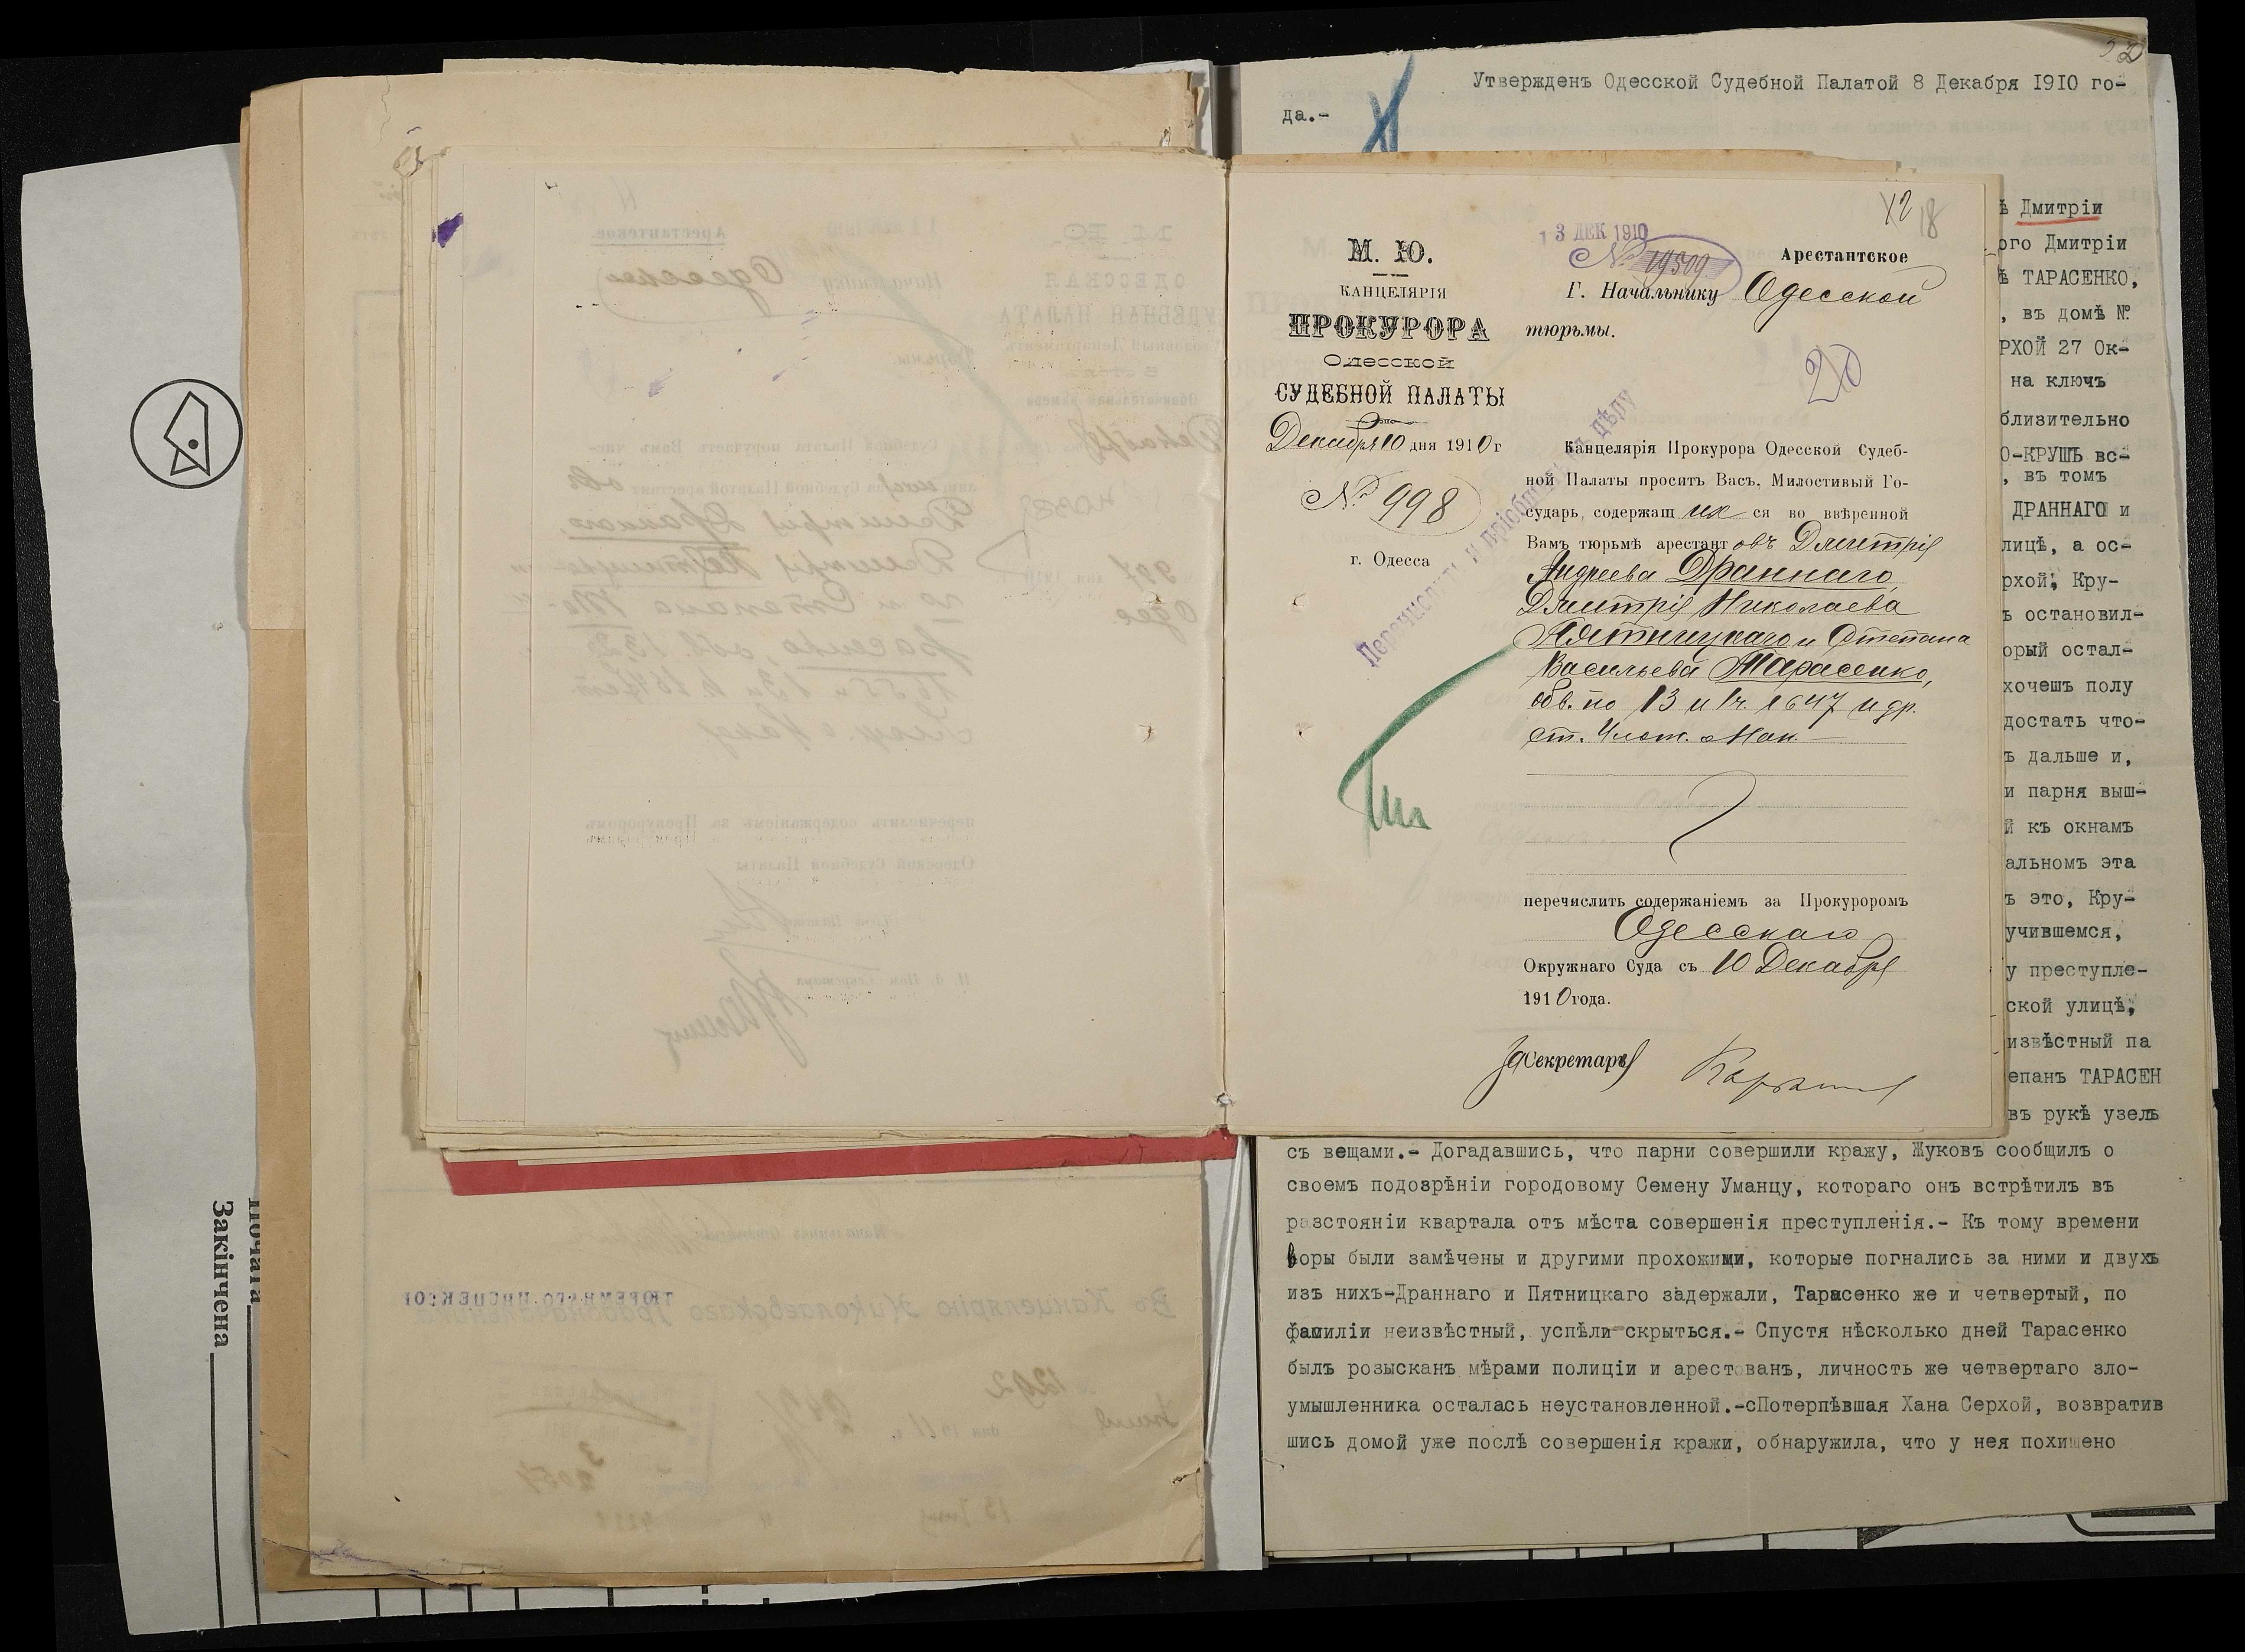 Утвержденъ Одесской Судебной Палатой 8 Декабря 1910 го-
да.-
12
18
13 ДЕК 1910
№ 19509
М. Ю.
КАНЦЕЛЯРІЯ
ПРОКУРОРА
Одесской
СУДЕБНОЙ ПАЛАТЫ
Декабря 10 дня 1910 г
№ 998
г. Одесса
Арестантское
Г. Начальнику Одесской
тюрьмы.
20
Перечислить и пріобщить къ дѣлу
Канцелярія Прокурора Одесской Судеб-
ной Палаты проситъ Васъ, Милостивый Го-
сударь, содержащ ихся во ввѣренной
Вамъ тюрьмѣ арестантовъ Дмитрія
Андреева Драннаго,
Дмитрія Николаева
Пятницкаго и Степана
Васильева Тарасенко,
обв. по 13 и 1 ч. 1647 и др.
ст. Улож. о Нак.
перечислить содержаніемъ за Прокуроромъ
Одесскаго
Окружнаго Суда съ 10 Декабря
1910 года.
Секретарь
ѣ Дмитріи
ого Дмитріи
ѣ ТАРАСЕНКО,
, въ домѣ №
РХОЙ 27 Ок-
на ключъ
близительно
О-КРУШЬ вс-
, въ томъ
ДРАННАГО и
лицѣ, а ос-
рхой, Кру-
ъ остановил-
орый остал-
хочешъ полу
достать что-
ъ дальше и,
и парня выш-
й къ окнамъ
альномъ эта
ъ это, Кру-
учившемся,
у преступле-
ской улицѣ,
извѣстный па
епанъ ТАРАСЕН
въ рукѣ узелъ
съ вещами.- Догадавшись, что парни совершили кражу, Жуковъ сообщилъ о
своемъ подозрѣніи городовому Семену Уманцу, котораго онъ встрѣтилъ въ
разстояніи квартала отъ мѣста совершенія преступленія.- Къ тому времени
воры были замѣчены и другими прохожими, которые погнались за ними и двухъ
изъ нихъ-Драннаго и Пятницкаго задержали, Тарасенко же и четвертый, по
фамиліи неизвѣстный, успѣли скрыться.- Спустя нѣсколько дней Тарасенко
былъ розысканъ мѣрами полиціи и арестованъ, личность же четвертаго зло-
умышленника осталась неустановленной.-сПотерпѣвшая Хана Серхой, возвратив
шись домой уже послѣ совершенія кражи, обнаружила, что у нея похищено
Почата
Закінчена